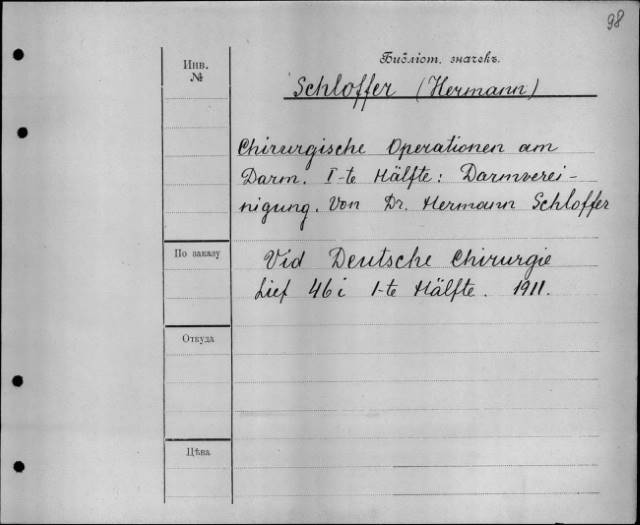 98
Библіот. значекъ.
Инв.
№
Schloffer (Hermann)
Chirurgische Operationen am
Darm. I-te Hälfte: Darmverei-
nigung. Von Dr. Hermann Schloffer
По заказу
Vid Deutsche Chirurgie
Lief 46i 1-te Hälfte. 1911.
Откуда
Цѣна